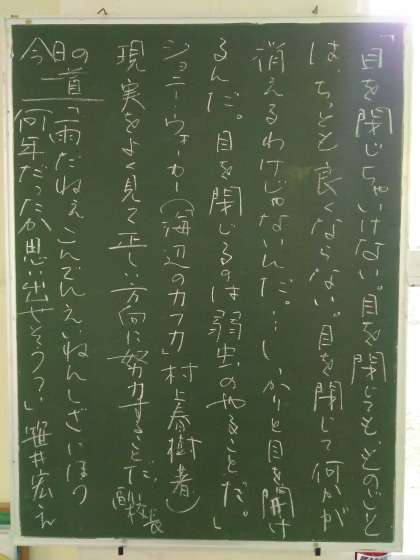 「目を閉じちゃいけない。目を閉じても、ものごと
は、ちっとも良くならない。目を閉じて何かが
消えるわけじゃないんだ。…しっかりと目を開け
るんだ。目を閉じるのは弱虫のやることだ。」
ジョニーウォーカー(海辺のカフカ 村上春樹著)
現実をよく見て正しい方向に努力することだ。 副校長
今日の一首
「雨だねぇ こんでんえいねんしざいほう
何年だったか思い出せそう?」 笹井宏之